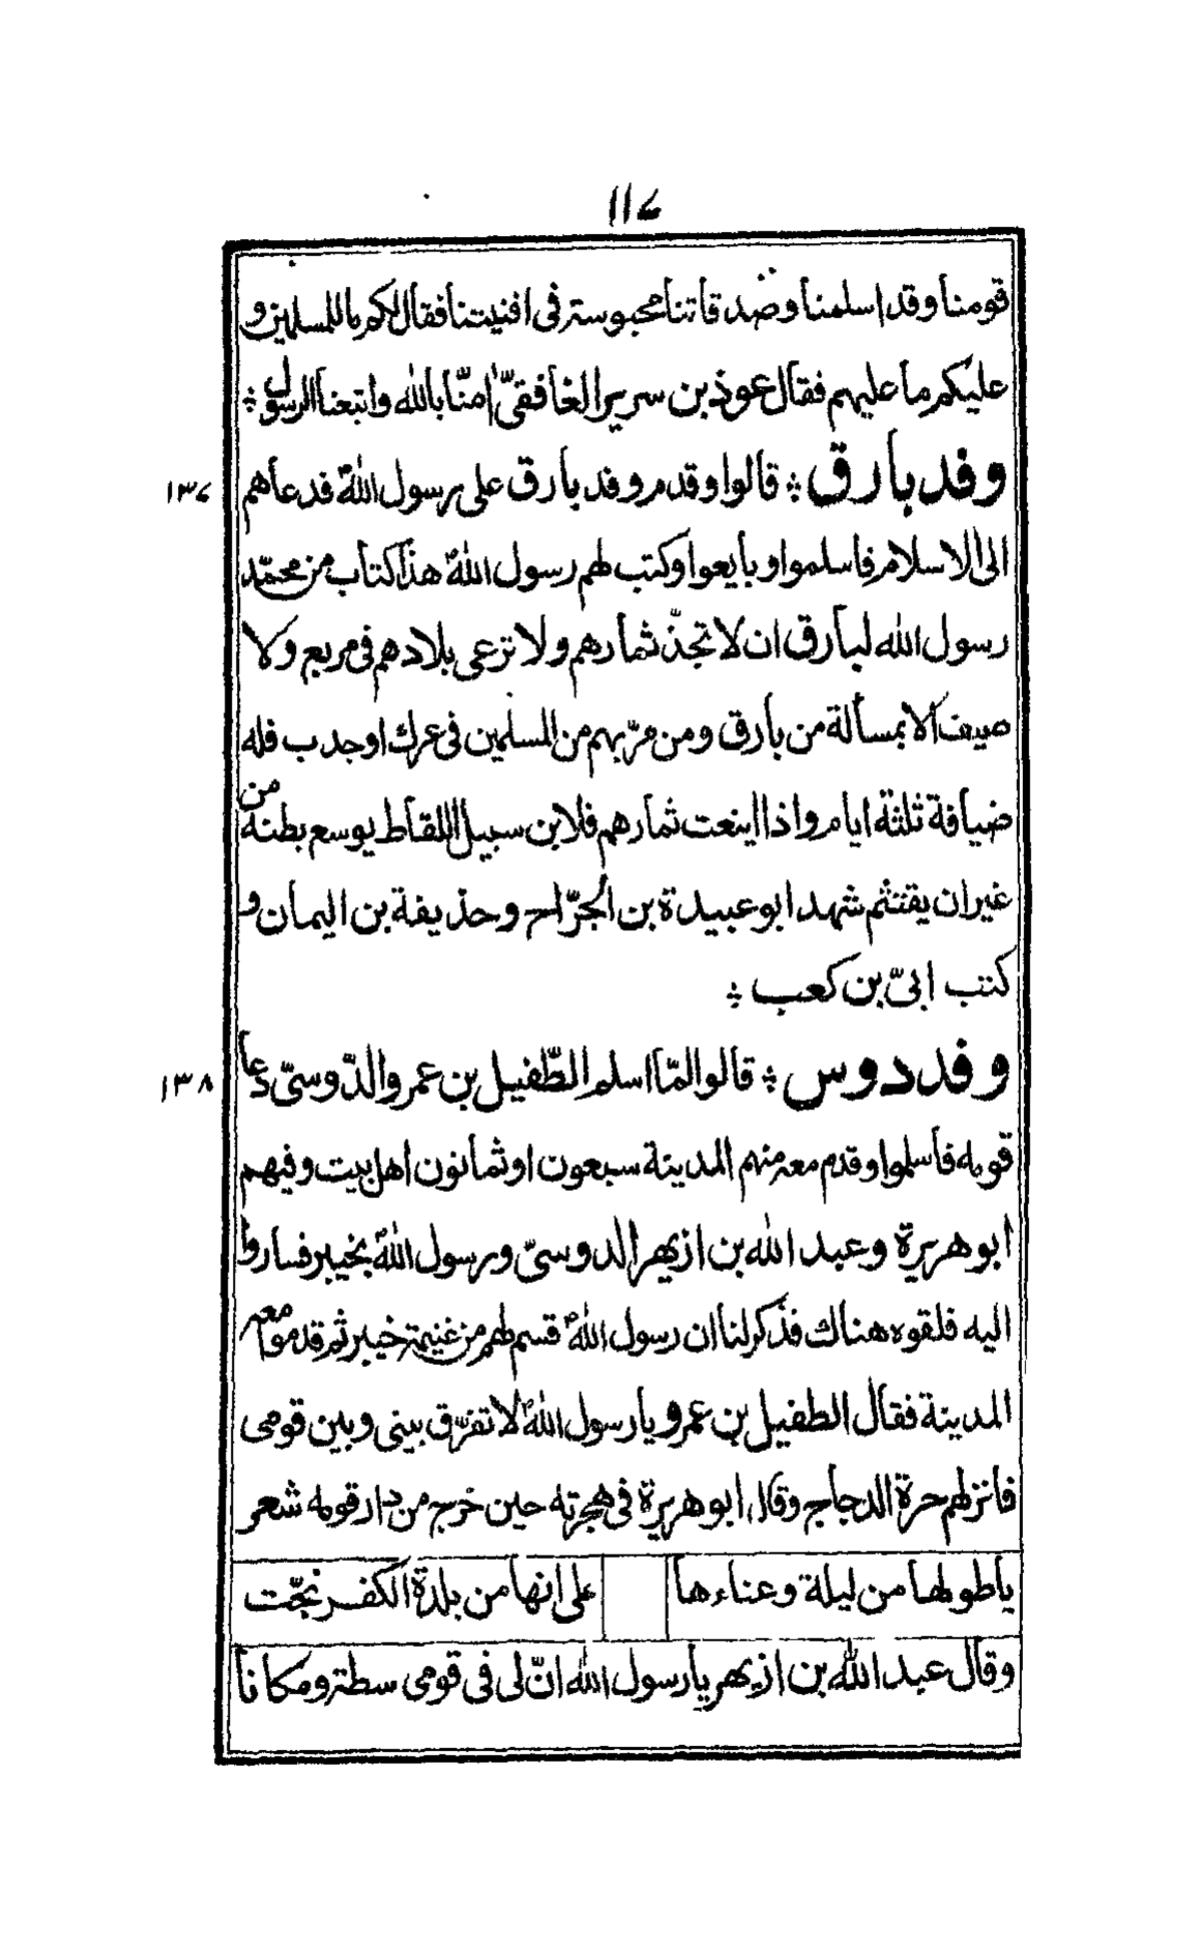 ١١٧
قومنا وقد اسلمنا وصدقاتنا محبوسة في افنيتنا فقال لكم ما للمسلمين و
عليكم ما عليهم فقال عوذ بن سرير الغافقيّ اٰمنّا بالله واتبعنا الرسول ؞
١٣٧ وفد بارق ؞ قالوا وقدم وفد بارق على رسول اللهؐ فدعاهم
الى الاسلام فاسلموا وبايعوا وكتب لهم رسول اللهؐ هذا كتاب من محمّد
رسول الله لبارق ان لا تجذّ ثمارهم ولا ترعى بلادهم في مربع ولا
صيف الا بمسألة من بارق ومن مرّ بهم من المسلمين في عرك او جدب فله
ضيافة ثلثة ايام واذا اينعت ثمارهم فلابن سبيل اللقاط يوسع بطنه من
غير ان يقتثم شهد ابو عبيدة بن الجرّاح وحذيفة بن اليمان و
كتب ابيّ بن كعب ؞
١٣٨ وفد دوس ؞ قالوا لمّا اسلم الطّفيل بن عمرو الدّوسيّ دعا
قومه فاسلموا وقدم معه منهم المدينة سبعون او ثمانون اهل بيت وفيهم
ابو هريرة وعبد الله بن ازيهر الدوسيّ ورسول اللهؐ بخيبر فساروا
اليه فلقوه هناك فذكر لنا ان رسول اللهؐ قسم لهم من غنيمة خيبر ثم قدموا معه
المدينة فقال الطفيل بن عمرو يا رسول اللهؐ لا تفرّق بيني وبين قومي
فانزلهم حرة الدجاج وقال ابو هريرة في هجرته حين خرج من دار قومه شعر
يا طولها من ليلة وعناءها على انها من بلدة الكفر نجّت
وقال عبد الله بن ازيهر يا رسول الله انّ لي في قومي سطة ومكانا